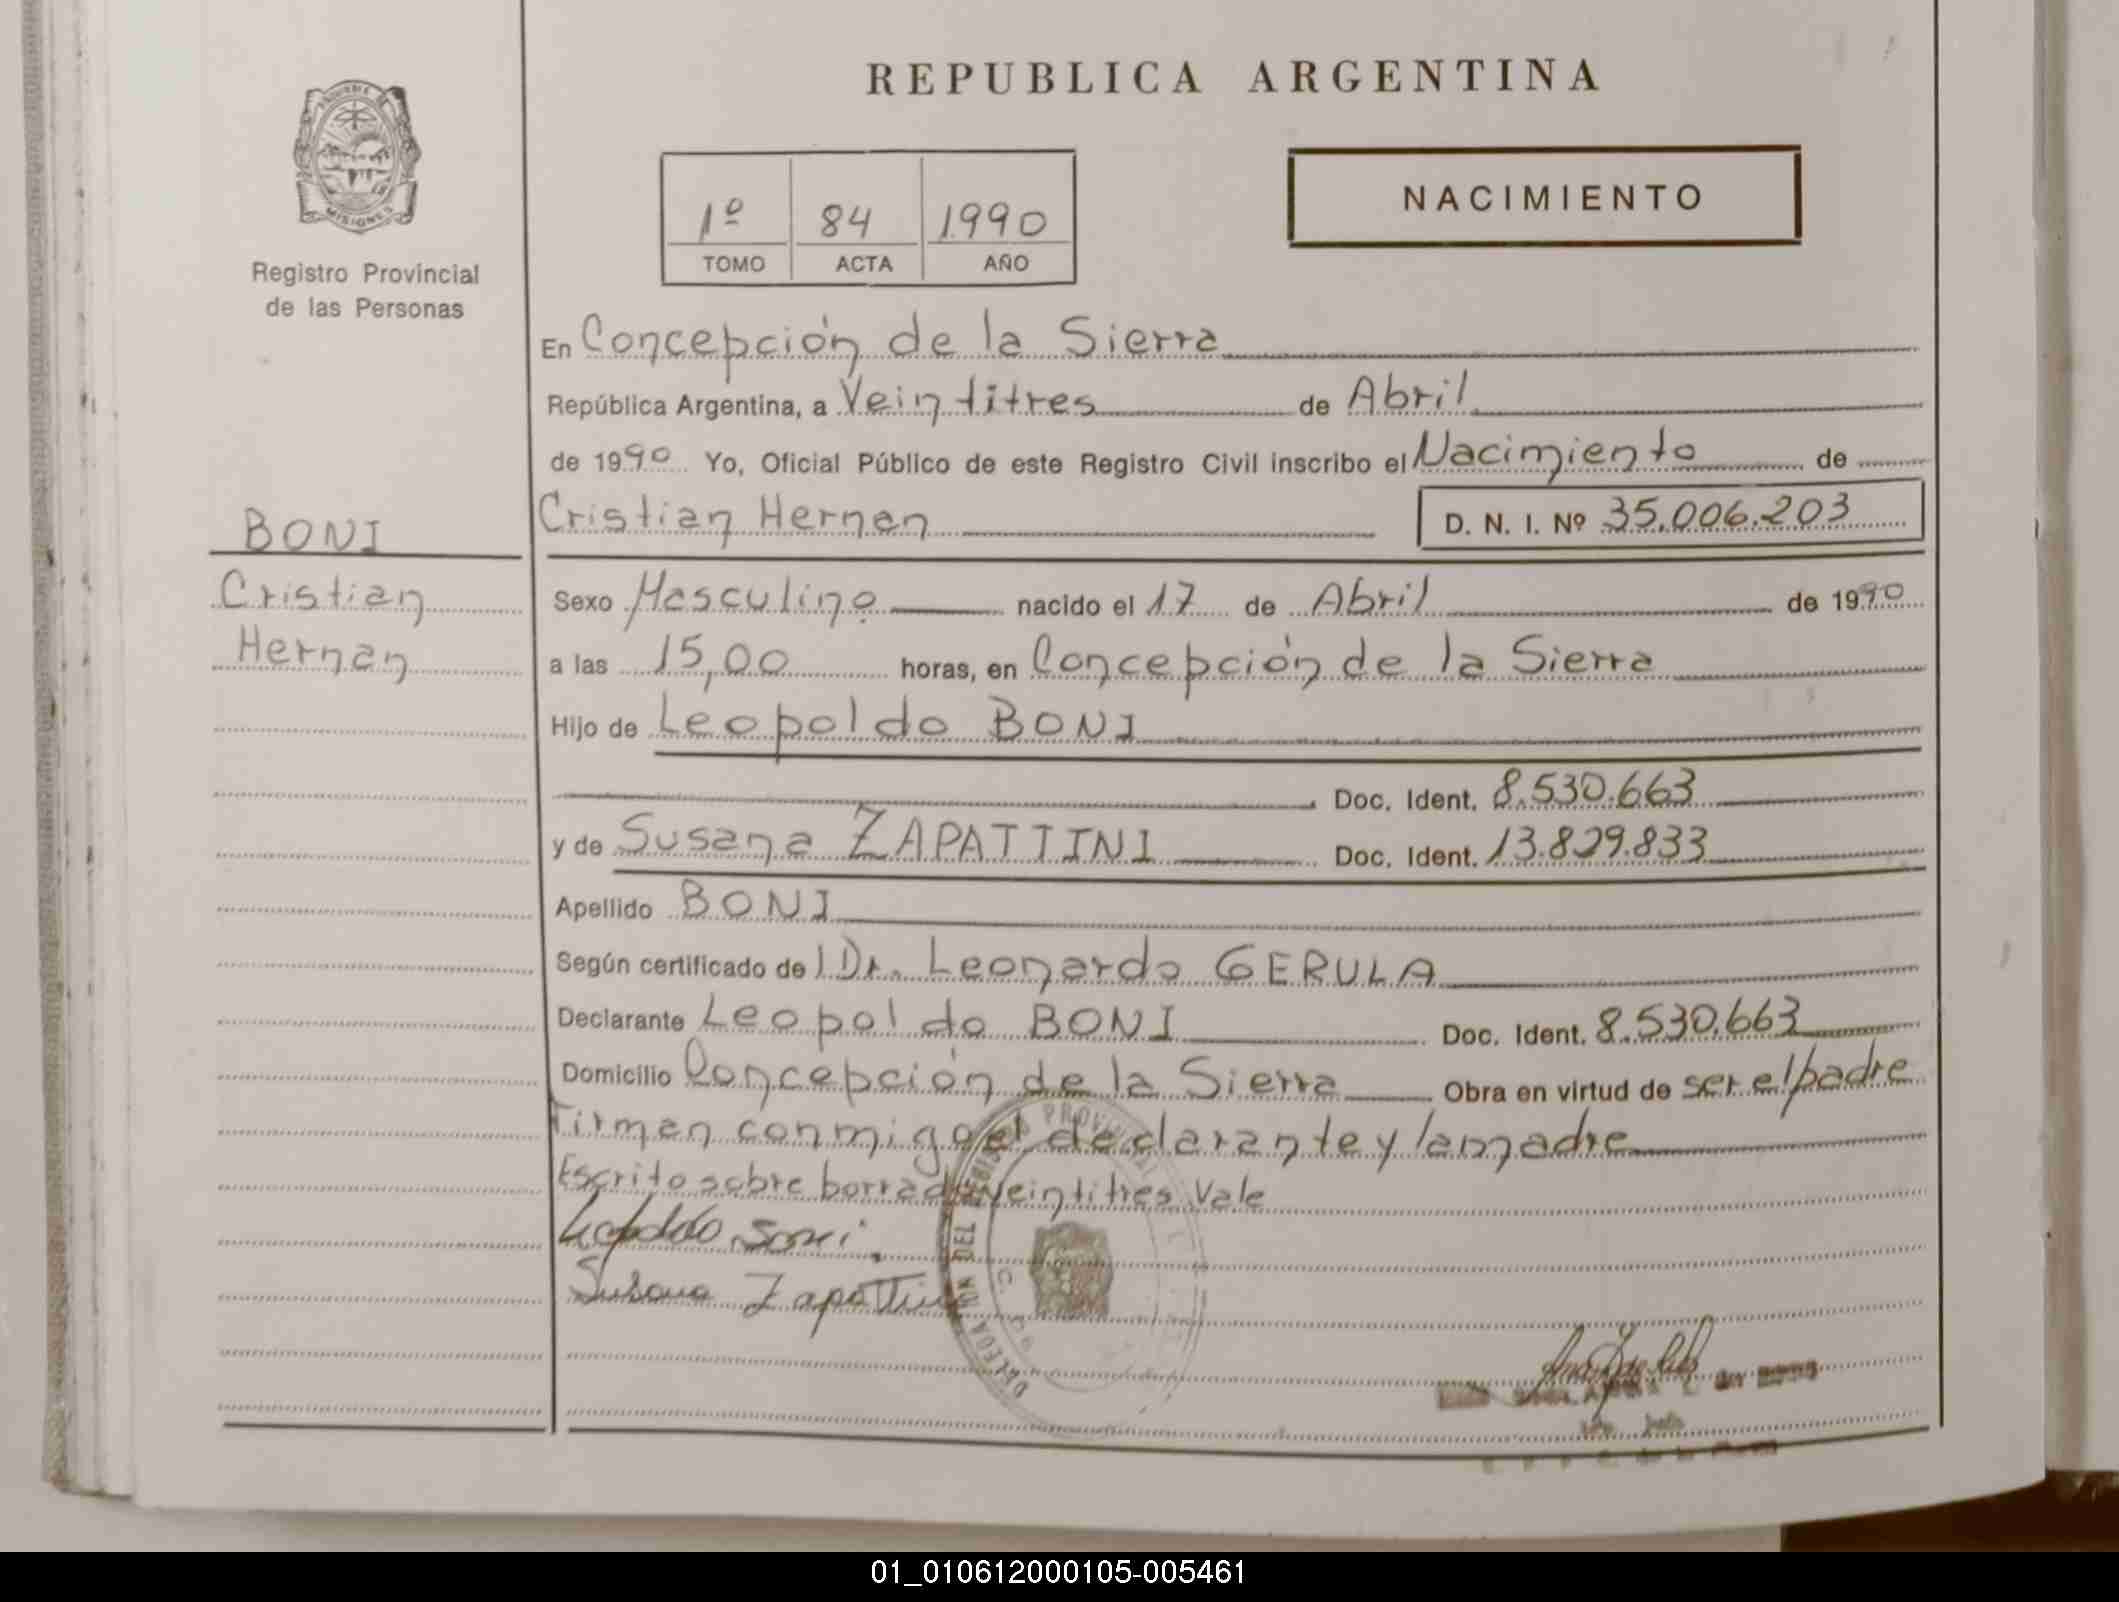 REPUBLICA ARGENTINA
MISIONES
Registro Provincial
de las Personas
1º 84 1990
TOMO ACTA AÑO
NACIMIENTO
En Concepción de la Sierra
República Argentina, a Veintitres de Abril
de 1990 Yo, Oficial Público de este Registro Civil inscribo el Nacimiento de
Cristian Hernan D. N. I. Nº 35.006.203
BONI
Cristian
Hernan
Sexo Masculino nacido el 17 de Abril de 1990
a las 15,00 horas, en Concepción de la Sierra
Hijo de Leopoldo BONI
Doc. Ident. 8.530.663
y de Susana ZAPATTINI Doc. Ident. 13.829.833
Apellido BONI
Según certificado del Dr. Leonardo GERULA
Declarante Leopoldo BONI Doc. Ident. 8.530.663
Domicilio Concepción de la Sierra Obra en virtud de ser el padre
Firman conmigo el declarante y la madre
Escrito sobre borrado Veintitres Vale
Leopoldo Boni.
Susana Zapattini
DEL REGISTRO PROVINCIAL
01_010612000105-005461